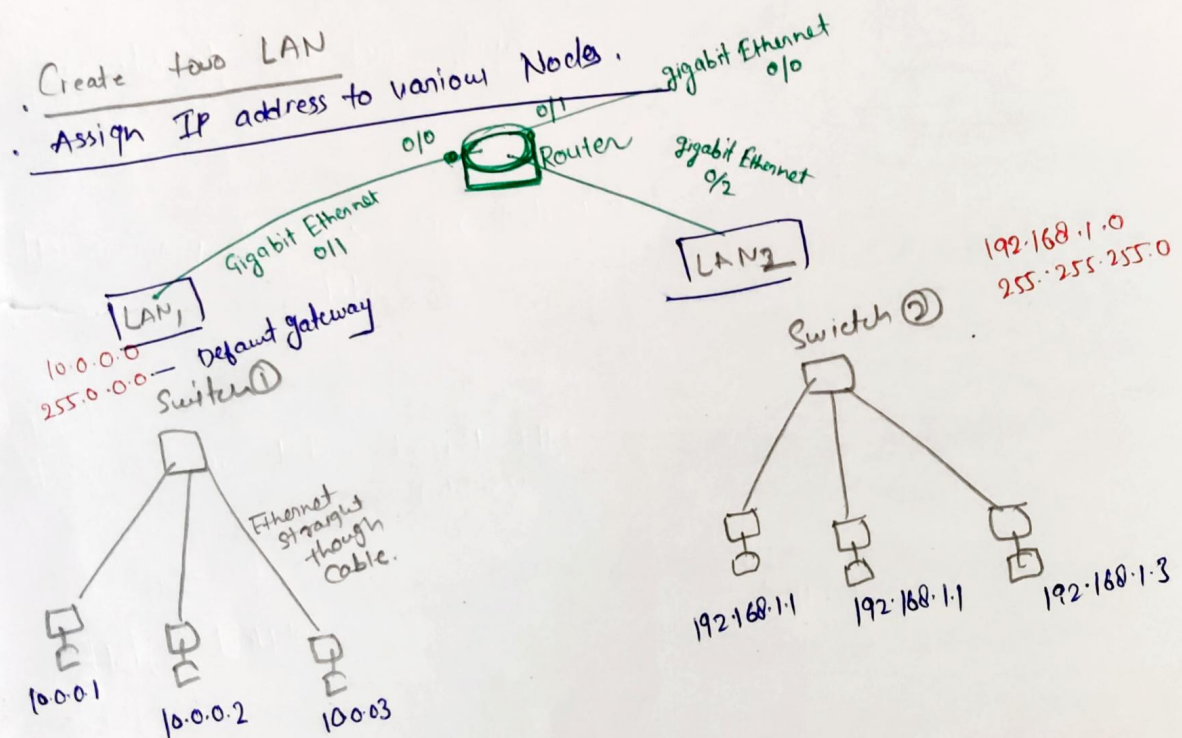 . Create two LAN
. Assign IP address to various Nodes.
gigabit Ethernet
0/0
0/1
0/0
Router
gigabit Ethernet
0/2
Gigabit Ethernet
0/1
LAN1
LAN2
192.168.1.0
255.255.255.0
10.0.0.0
255.0.0.0 — Defaut gateway
Switch ①
Swietch ②
Ethernet
straight
though
Cable.
10.0.0.1
10.0.0.2
10.0.03
192.168.1.1
192.168.1.1
192.168.1.3